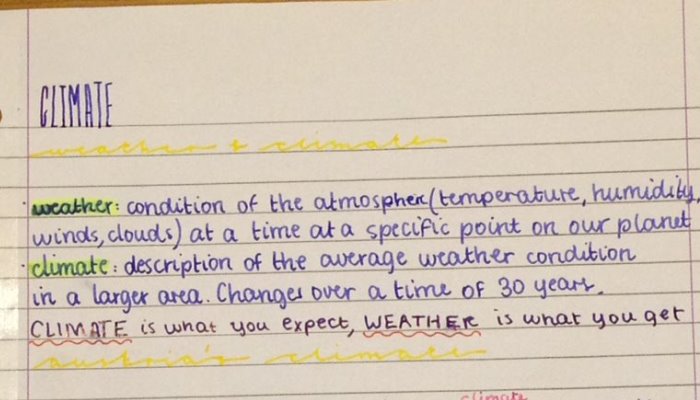 CLIMATE
weather + climate
· weather: condition of the atmospher (temperature, humidity,
winds, clouds) at a time at a specific point on our planet
· climate: description of the average weather condition
in a larger area. Changes over a time of 30 years.
CLIMATE is what you expect, WEATHER is what you get
austria's climate
climate